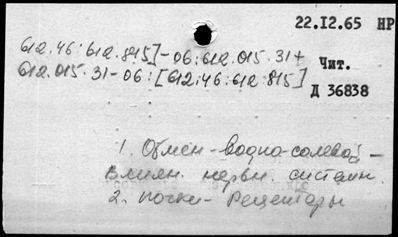 22.I2.65 НР
612.46:612.815]-06:612.015.31+
Чит.
612.015.31-06:[612.46:612.815]
Д 36838
1. Обмен - водно-солевой -
влиян. нервн. систем
2. почки - рецепторы